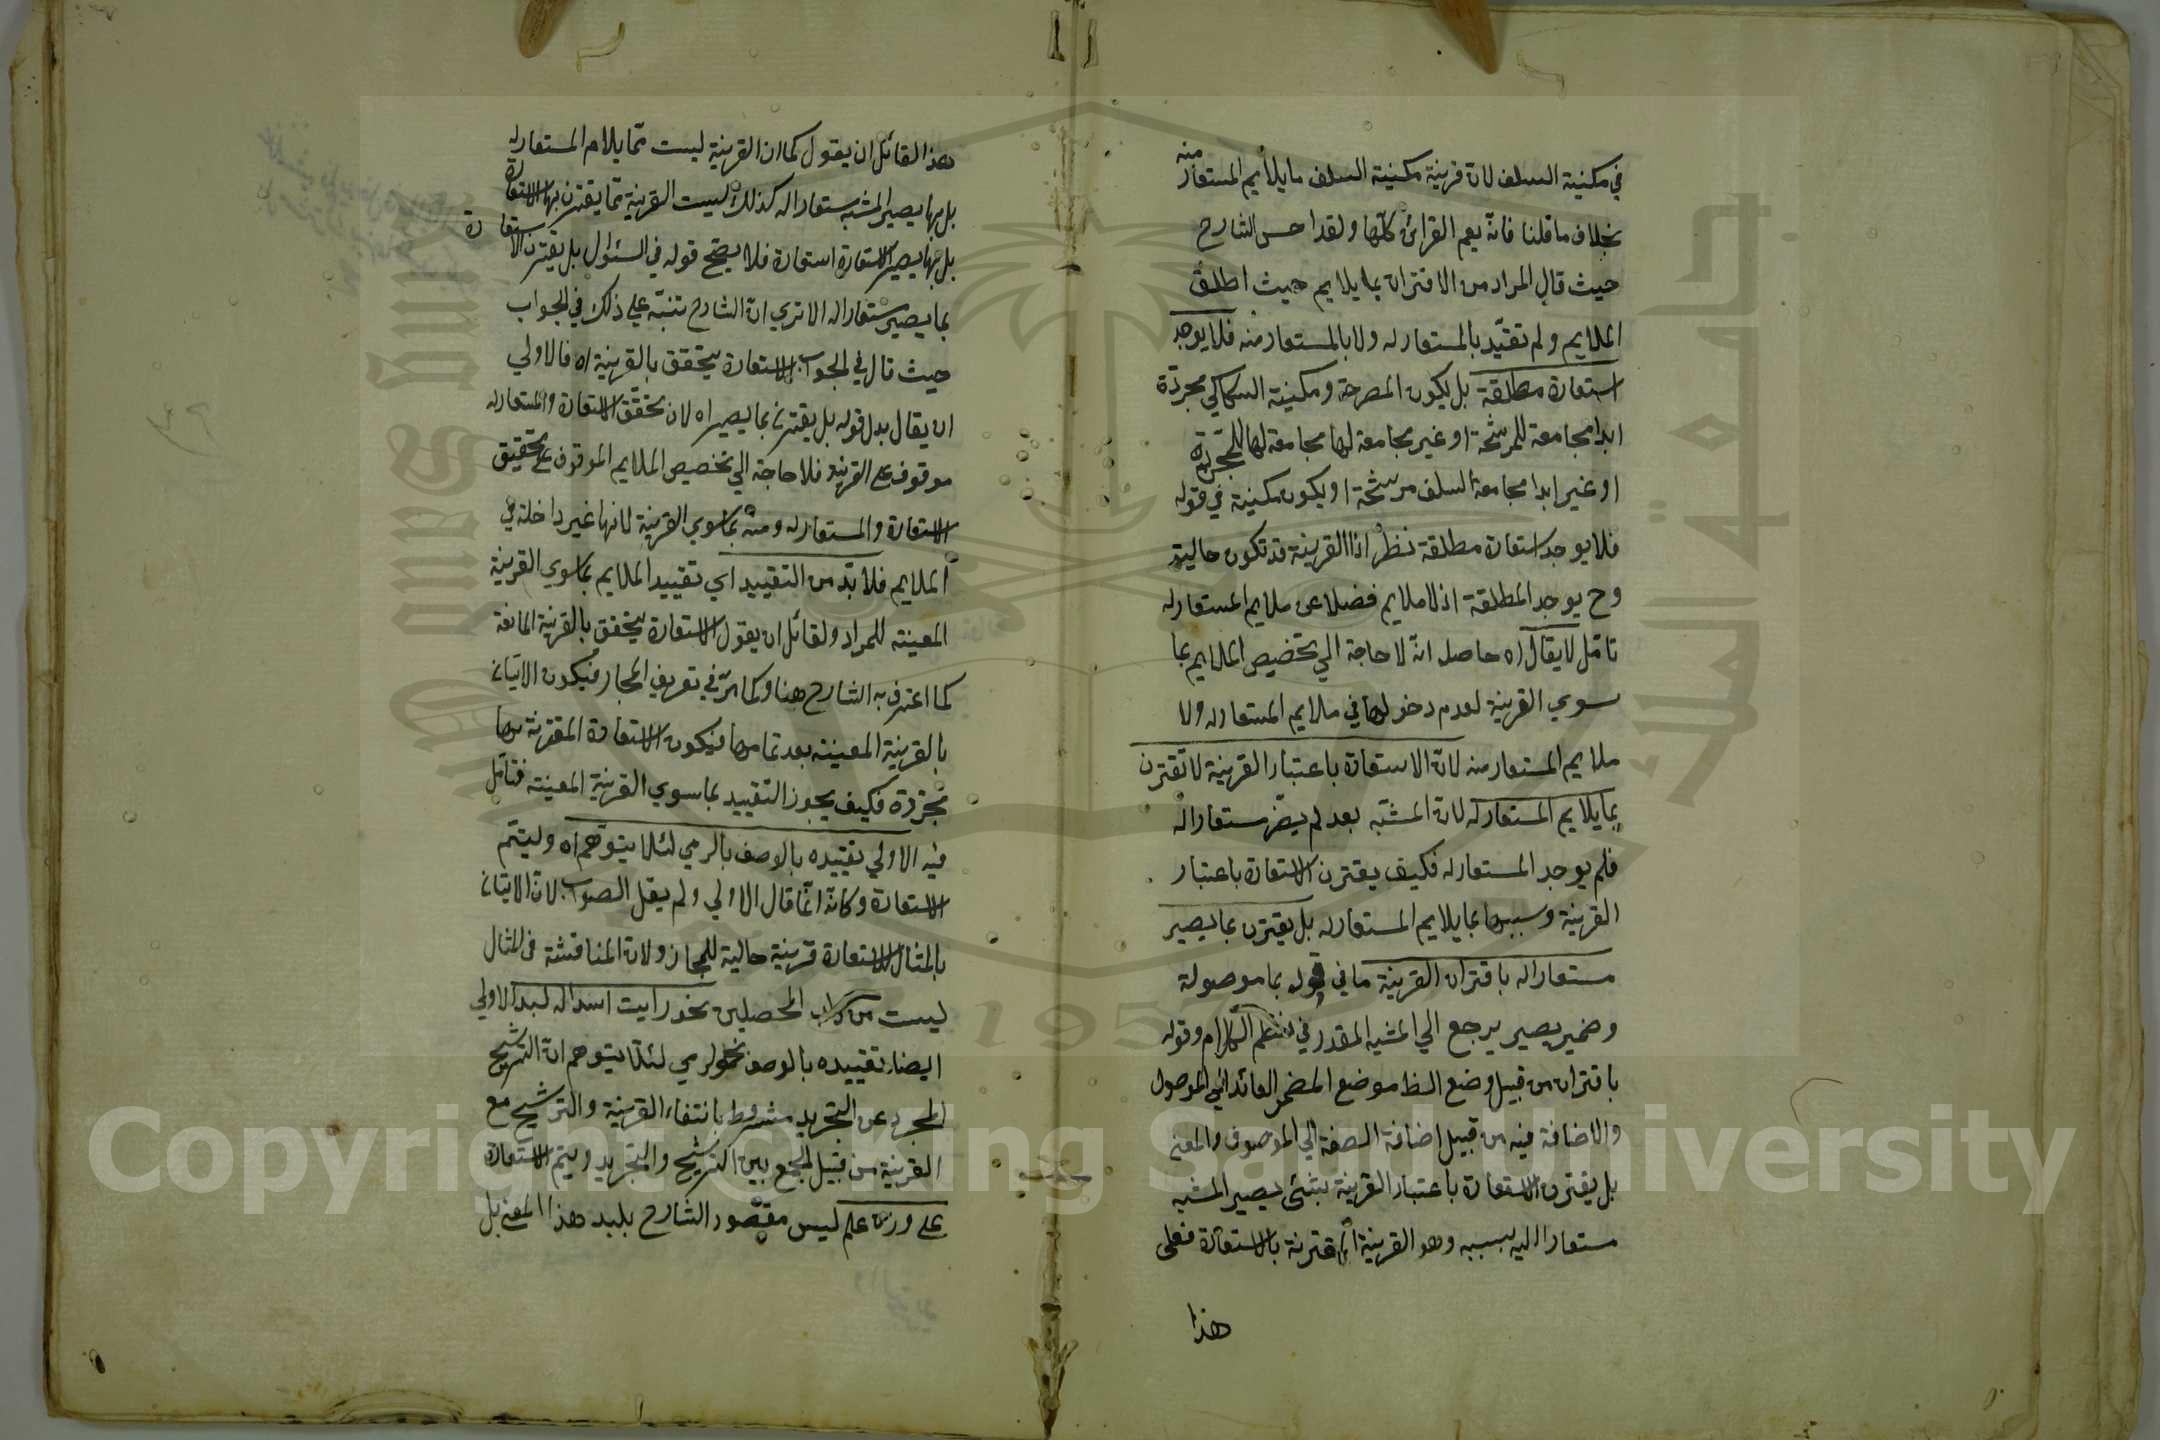 في مكنية السلف لان قرينة مكنية السلف ما يلايم المستعار منه
بخلاف ما قلنا فانه يعم القرائن كلها ولقد احسن الشارح
حيث قال المراد من الاقتران بما يلايم حيث اطلق
الملايم ولم تقيد بالمستعار له ولا بالمستعار منه فلا يوجد
استعارة مطلقة بل يكون المصرحة ومكنية السكاكي مجردة
ابدا مجامعة للمرشحة او غير مجامعة لها مجامعة لها للمجردة
او غير ابدا مجامعة السلف مرشحة او يكون مكنية في قوله
فلا يوجد استعارة مطلقة نظر اذ القرينة قد تكون حالية
وح يوجد المطلقة اذ لا ملايم فضلا عن ملايم المستعار له
تامل لا يقال اه حاصله انه لا حاجة الي تخصيص الملايم بما
سوي القرينة لعدم دخولها في ملايم المستعار له ولا
ملايم المستعار منه لان الاستعارة باعتبار القرينة لا تقترن
بما يلايم المستعار له لان المشبه بعد لم يصر مستعارا له
فلم يوجد المستعار له فكيف يقترن الاستعارة باعتبار
القرينة وسببها بما يلايم المستعار له بل يقترن بما يصير
مستعارا له باقتران القرينة ما في قوله بما موصولة
وضمير يصير يرجع الي المشبه المقدر في نظم الكلام وقوله
باقتران من قبيل وضع الظ موضع المضمر العائد الي الموصول
والاضافة فيه من قبيل اضافة الصفة الي الموصوف والمعنى
بل يقترن الاستعارة باعتبار القرينة بشئ يصير المشبه
مستعارا اليه بسببه وهو القرينة المقترنة بالاستعارة فعلى
هذا
هذا القائل ان يقول كما ان القرينة ليست مما يلام المستعار له
بل بها يصير المشبه مستعارا له كذلك ليست القرينة مما يقترن بها الاستعارة
بل بها يصير الاستعارة استعارة فلا يصح قوله في السئوال بل يقترن الاستعارة
بما يصير مستعارا له الا تري ان الشارح تنبه علي ذلك في الجواب
حيث قال في الجواب الاستعارة يتحقق بالقرينة اه فالاولي
ان يقال بدل قوله بل يقترن بما يصير اه لان تحقق الاستعارة والمستعار له
موقوف على القرينة فلا حاجة الي تخصيص الملايم الموقوف على تحقيق
الاستعارة والمستعار له ومنه بما سوي القرينة لانها غير داخلة في
الملايم فلا بد من التقييد اي تقييد الملايم بما سوي القرينة
المعينة للمراد ولقائل ان يقول الاستعارة يتحقق بالقرينة المانعة
كما اعترف به الشارح هنا وكما مر في تعريف المجاز فيكون الاتيان
بالقرينة المعينة بعد تمامها فيكون الاستعارة المقترنة بها
مجردة فكيف يجوز التقييد بما سوي القرينة المعينة فتامل
فيه الاولي تقييده بالوصف بالرمي لئلا يتوهم اه وليتم
الاستعارة وكانه انما قال الاولي ولم يقل الصواب لان الاتيان
بالمثال الاستعارة قرينة حالية للمجاز ولان المناقشة في المثال
ليست من داب المحصلين نحو رايت اسدا له لبد الاولي
ايضا تقييده بالوصف نحو لرمي لئلا يتوهم ان الترشيح
المجرد عن التجريد مشروط بانتفاء القرينة والترشيح مع
القرينة من قبيل الجمع بين الترشيح والتجريد ويتم الاستعارة
علي ليس مقصود الشارح بلبد هذا المعنى بل